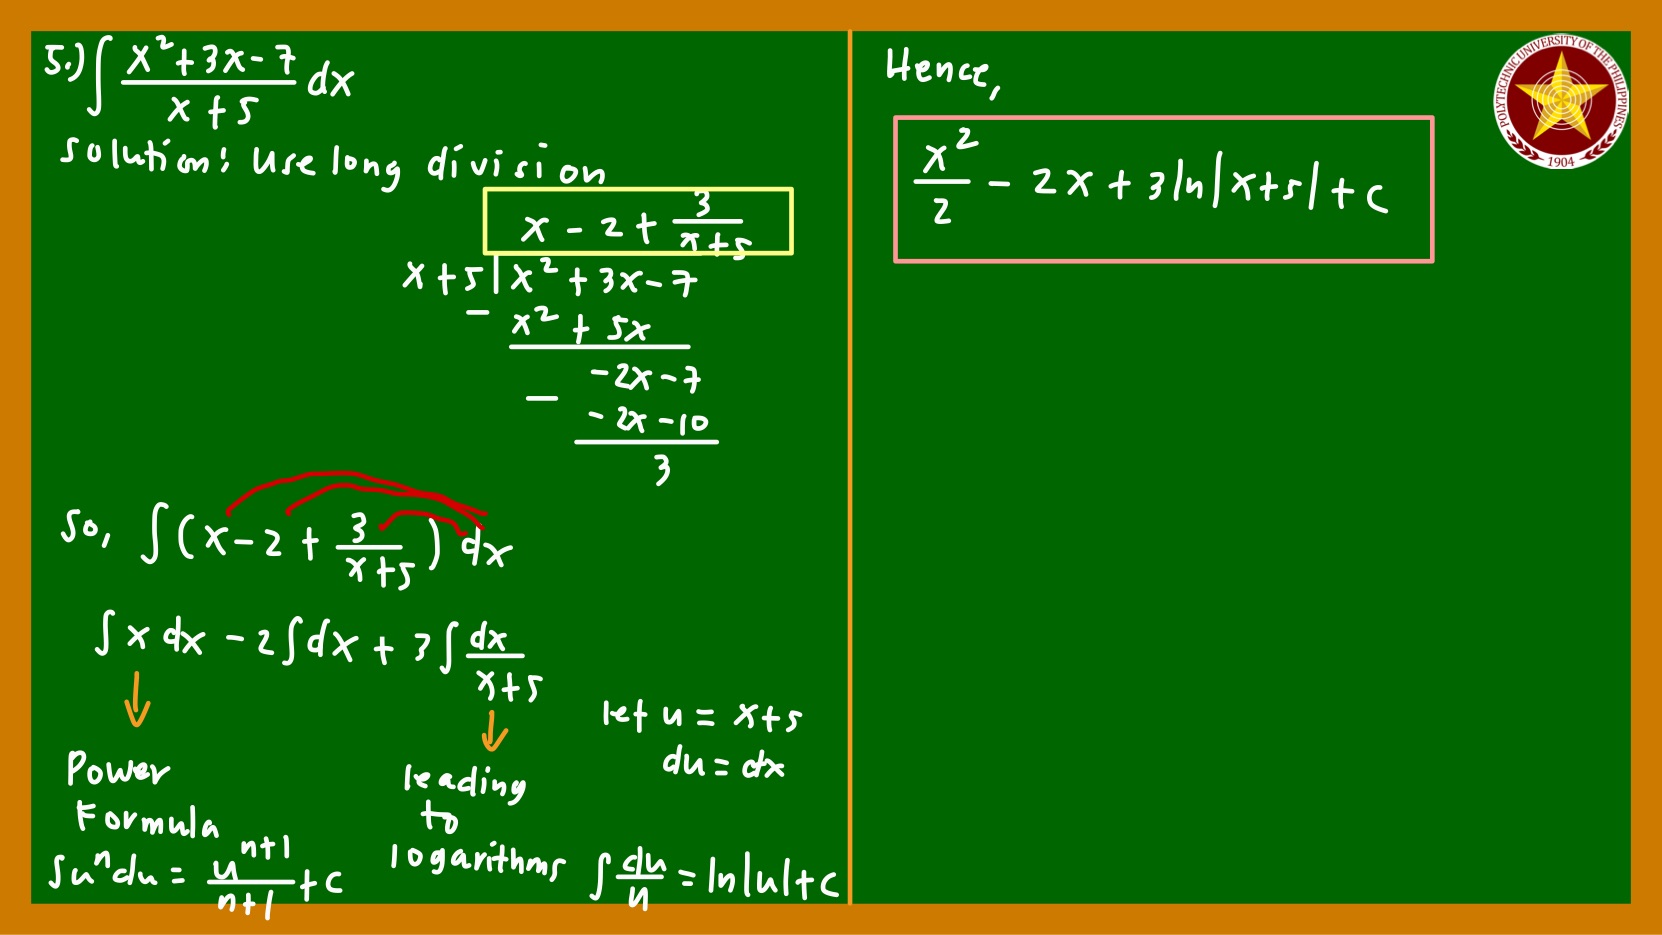 5.) ∫ (x² + 3x - 7)/(x + 5) dx
solution: Use long division
x - 2 + 3/(x+5)
x + 5 | x² + 3x - 7
- x² + 5x
-2x - 7
- -2x - 10
3
So, ∫ (x - 2 + 3/(x+5)) dx
∫ x dx - 2 ∫ dx + 3 ∫ dx/(x+5)
Power
Formula
∫ uⁿ du = uⁿ⁺¹/(n+1) + c
leading
to
logarithms
let u = x+5
du = dx
∫ du/u = ln|u| + c
Hence,
x²/2 - 2x + 3 ln|x+5| + c
POLYTECHNIC UNIVERSITY OF THE PHILIPPINES
1904